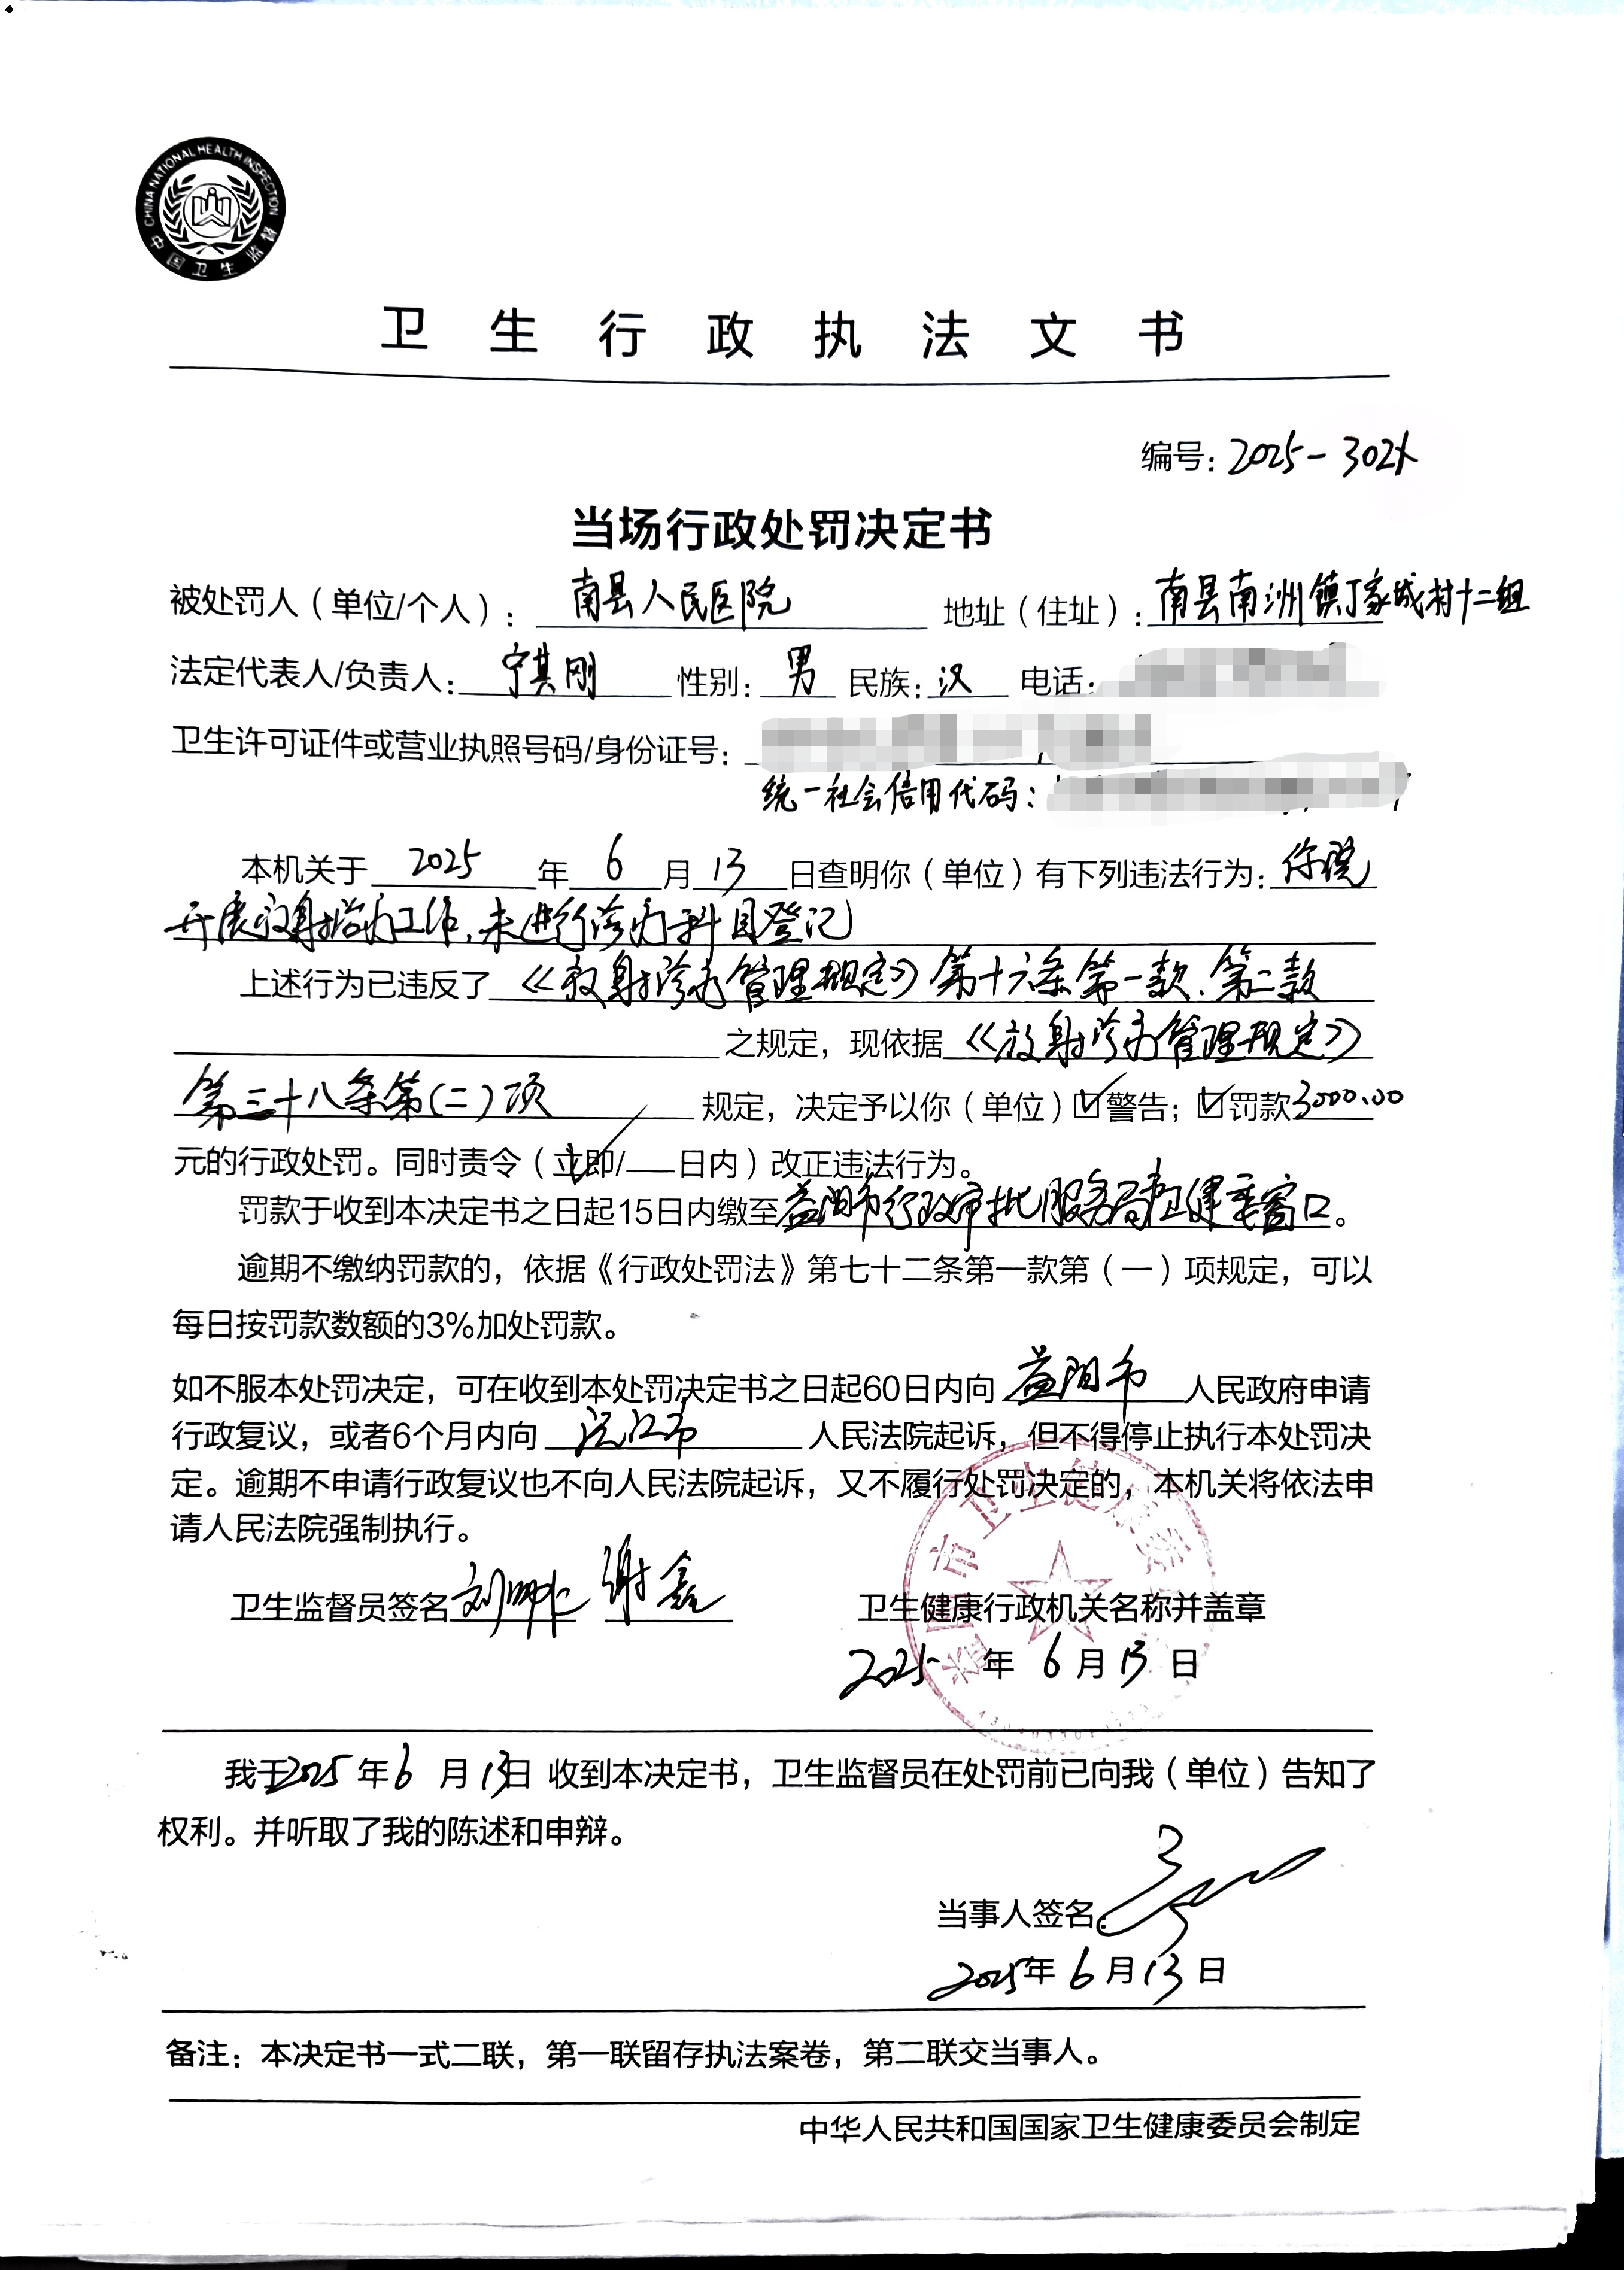 CHINA NATIONAL HEALTH INSPECTION
中国卫生监督
卫生行政执法文书
编号: 2025-302
当场行政处罚决定书
被处罚人（单位/个人）: 南县人民医院 地址（住址）: 南县南洲镇丁家城村十二组
法定代表人/负责人: 宁其刚 性别: 男 民族: 汉 电话:
卫生许可证件或营业执照号码/身份证号:
统一社会信用代码:
本机关于 2025 年 6 月 13 日查明你（单位）有下列违法行为: 你院
开展放射诊疗工作,未进行诊疗科目登记
上述行为已违反了《放射诊疗管理规定》第十六条第一款、第二款
之规定，现依据《放射诊疗管理规定》
第三十八条第(二)项 规定，决定予以你（单位）☑警告；☑罚款3000.00
元的行政处罚。同时责令（立即/ 日内）改正违法行为。
罚款于收到本决定书之日起15日内缴至益阳市行政审批服务局卫健委窗口。
逾期不缴纳罚款的，依据《行政处罚法》第七十二条第一款第（一）项规定，可以
每日按罚款数额的3%加处罚款。
如不服本处罚决定，可在收到本处罚决定书之日起60日内向 益阳市 人民政府申请
行政复议，或者6个月内向 沅江市 人民法院起诉，但不得停止执行本处罚决
定。逾期不申请行政复议也不向人民法院起诉，又不履行处罚决定的，本机关将依法申
请人民法院强制执行。
卫生监督员签名 谢鑫 卫生健康行政机关名称并盖章
益阳市卫生健康委
2025 年 6 月 13 日
我于2025年6月13日 收到本决定书，卫生监督员在处罚前已向我（单位）告知了
权利。并听取了我的陈述和申辩。
当事人签名:
2025年6月13日
备注：本决定书一式二联，第一联留存执法案卷，第二联交当事人。
中华人民共和国国家卫生健康委员会制定